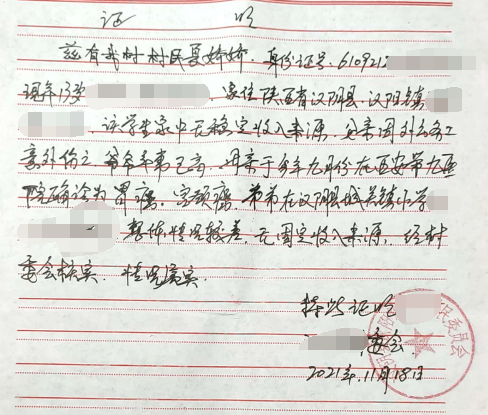 证 明
兹有我村村民夏娇娇.身份证号.610921
现年13岁 家住陕西省汉阴县.汉阳镇
该学生家中无稳定收入来源,父亲因外出务工
意外伤亡 爷爷年事已高,母亲于今年九月份在西安第九医
院确诊为胃癌,宫颈癌,弟弟在汉阴县城关镇小学
整体情况较差,无固定收入来源,经村
委会核实.情况属实.
特此证明
委会
2021年.11月18日
民委员会